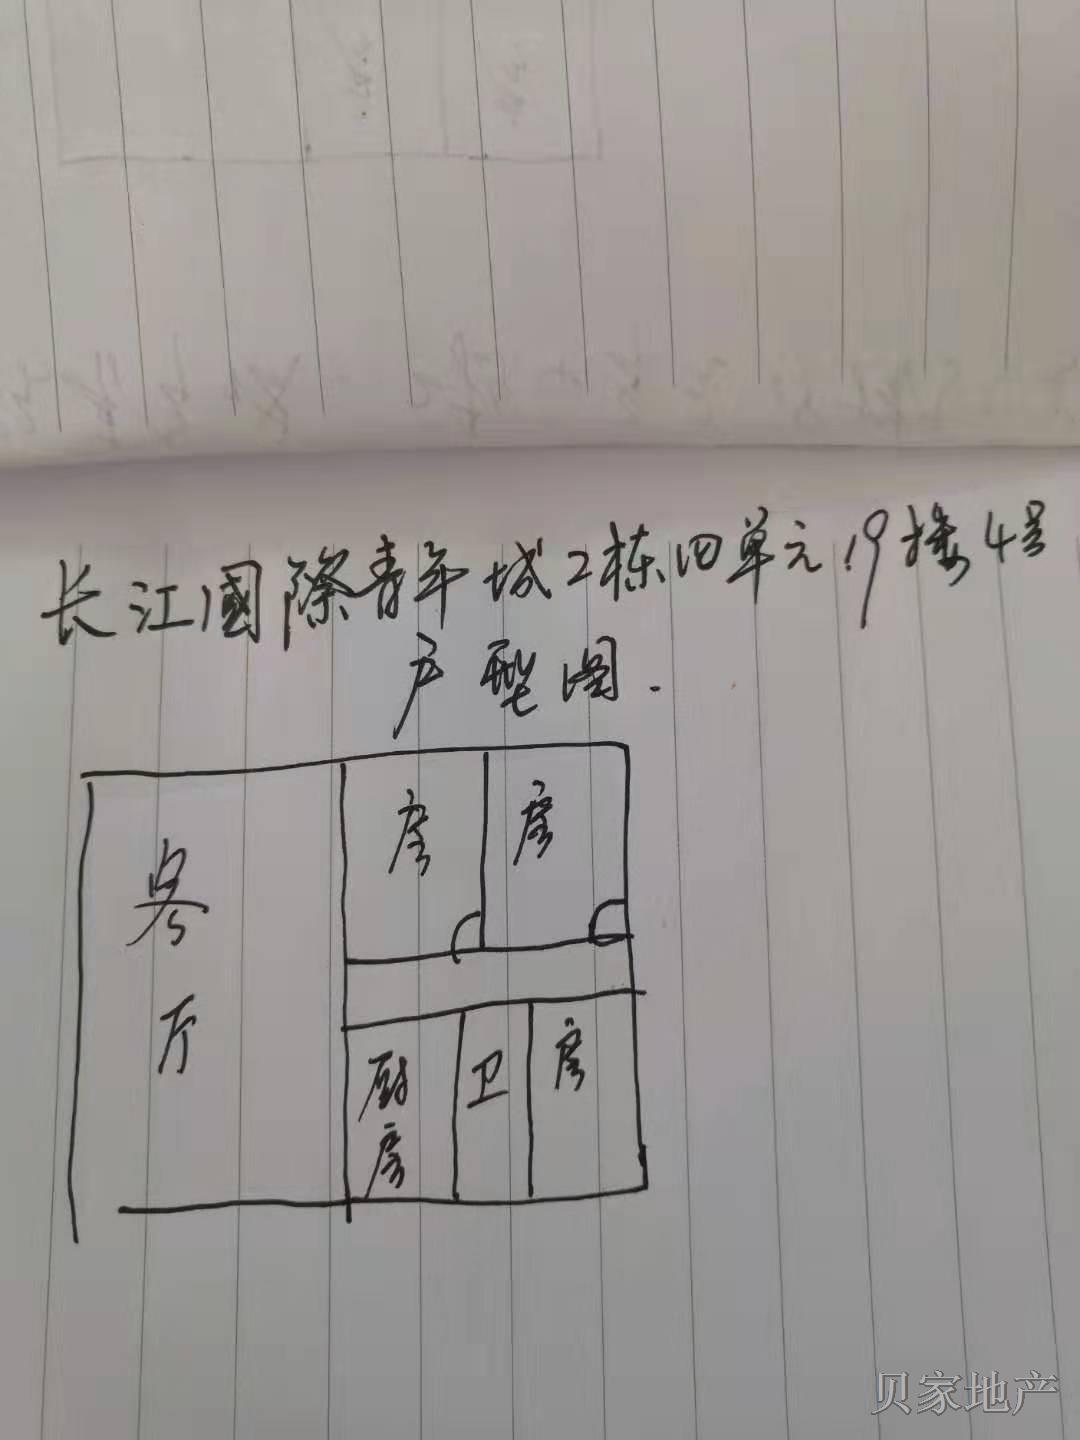 长江國際青年城2栋四单元19楼4号
户型图.
房
房
客
厅
厨
房
卫
房
贝家地产